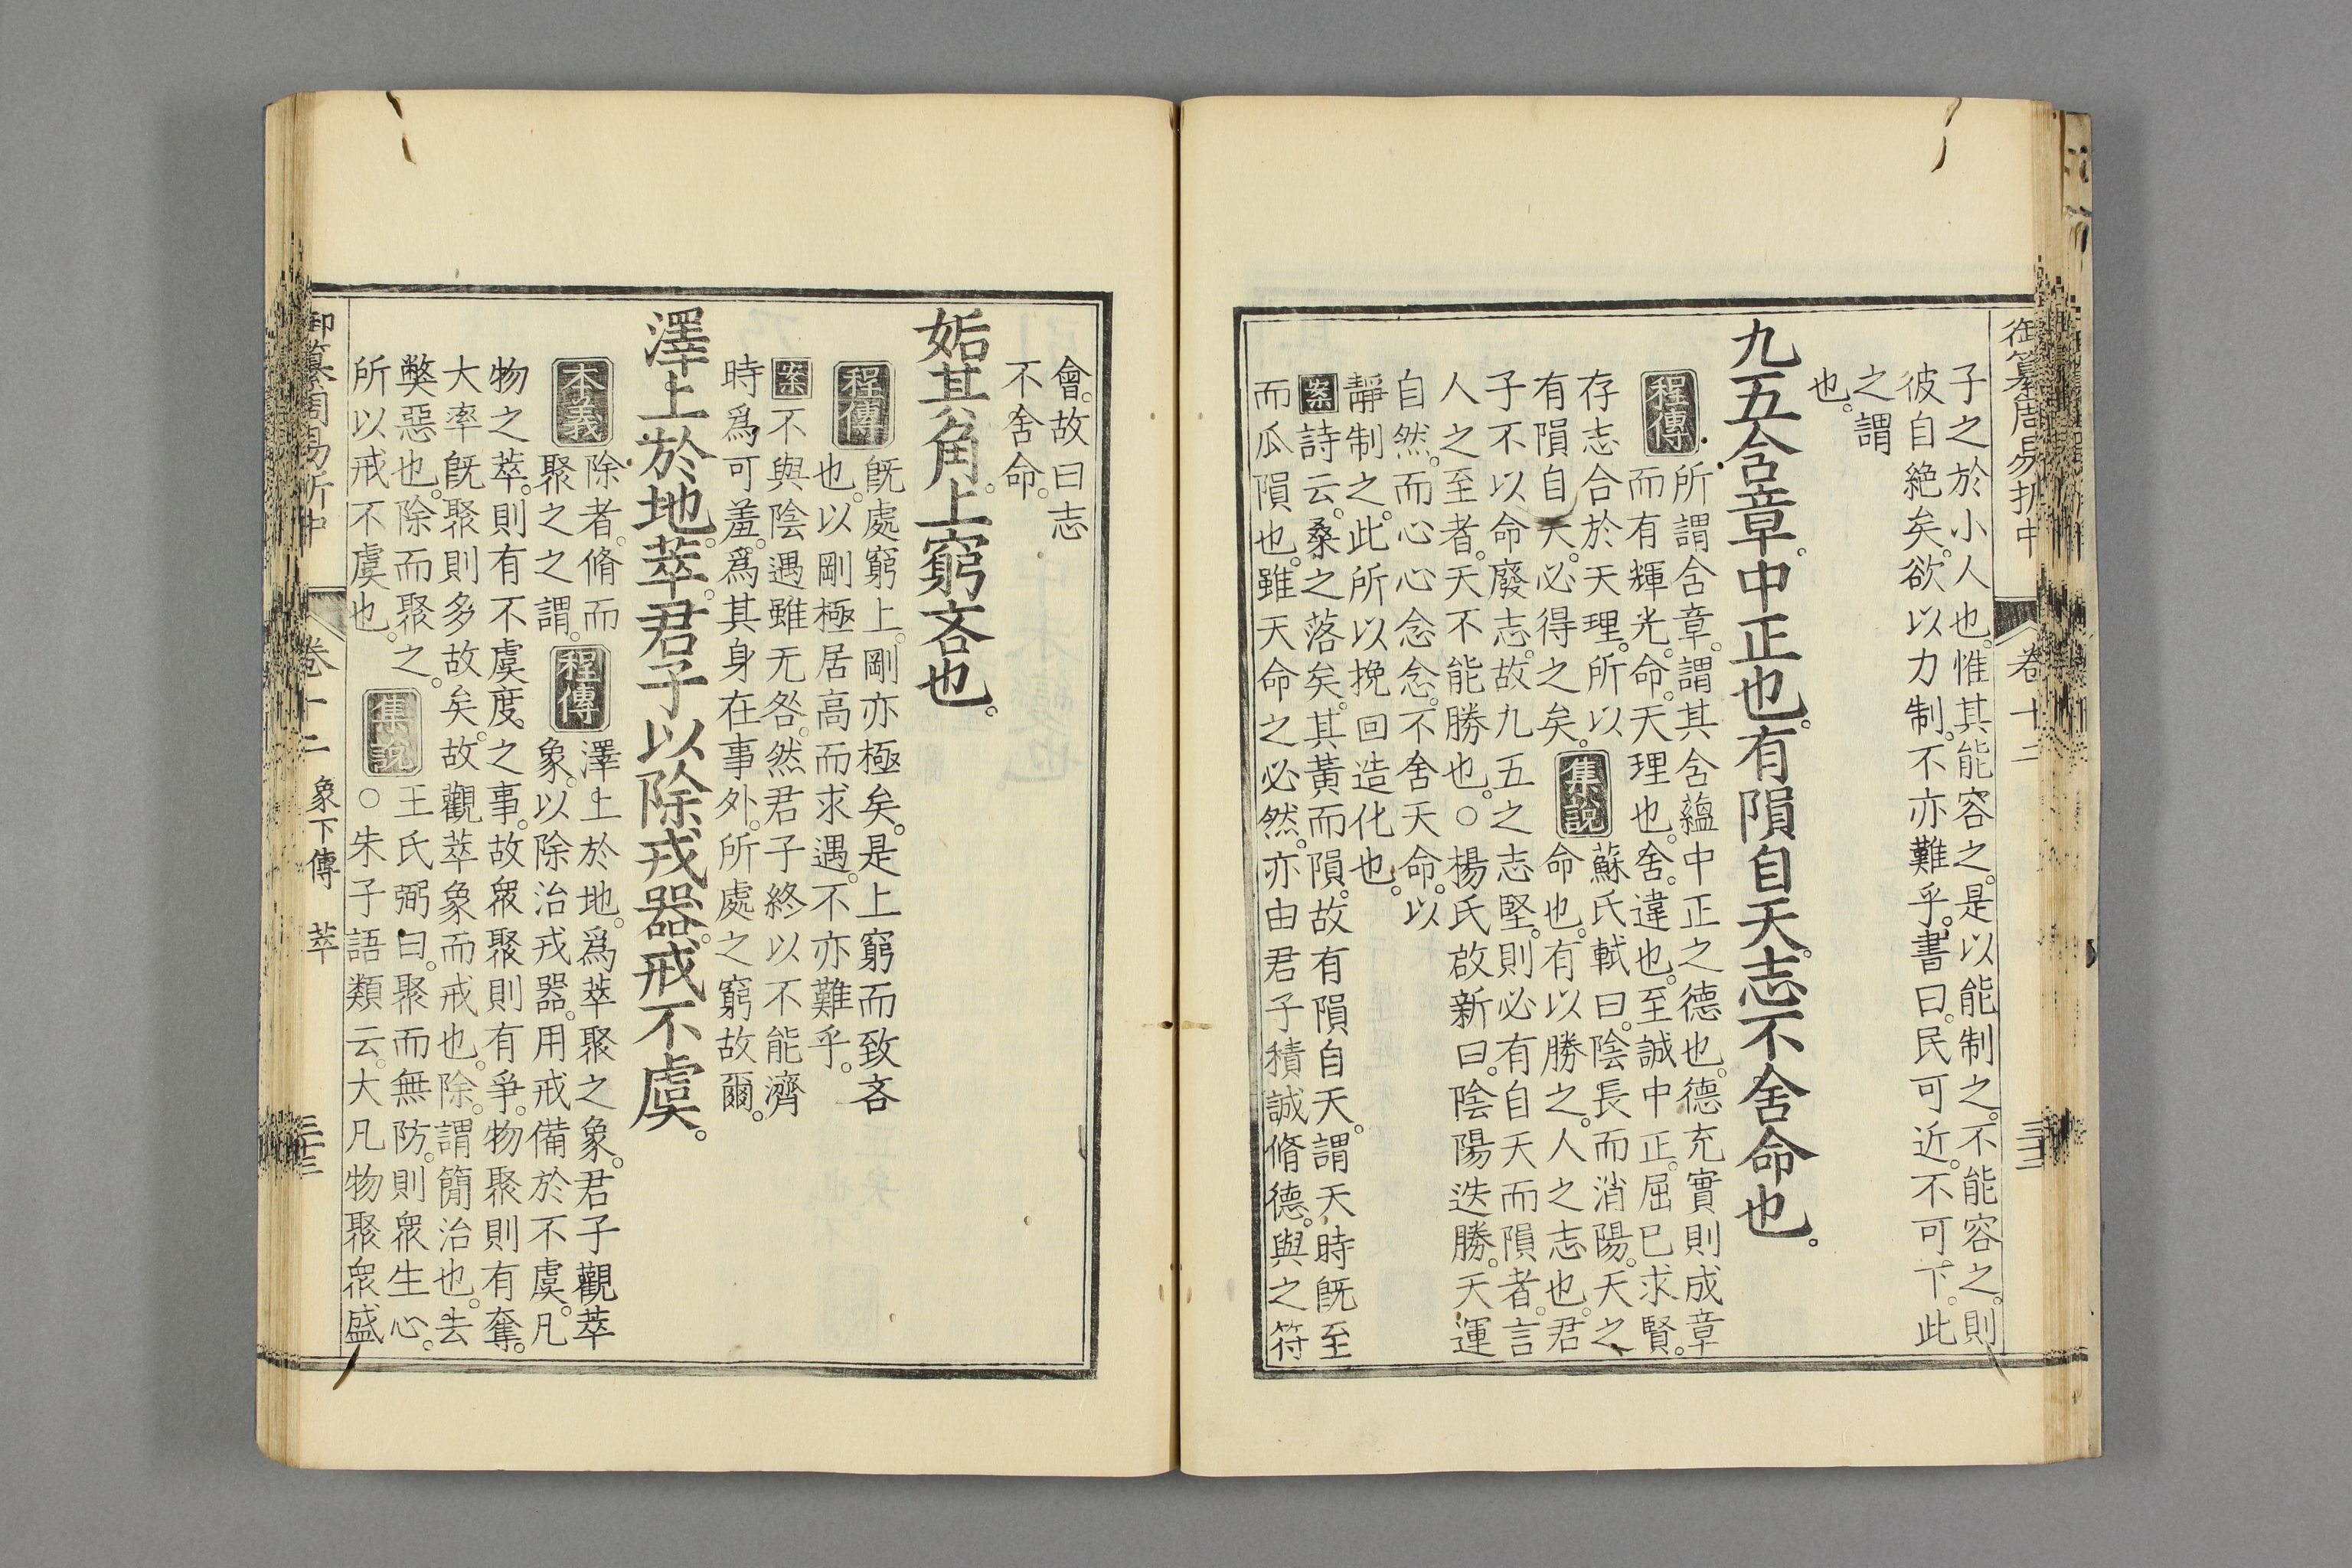 御纂周易折中
卷十二
子之於小人也。惟其能容之。是以能制之。不能容之。則
彼自絕矣。欲以力制。不亦難乎。書曰。民可近。不可下。此
之謂
也。
九五含章。中正也。有隕自天。志不舍命也。
程傳
所謂含章。謂其含蘊中正之德也。德充實則成章
而有輝光。命。天理也。舍。違也。至誠中正。屈己求賢。
存志合於天理。所以
有隕自天。必得之矣。
集說
蘇氏軾曰。陰長而消陽。天之
命也。有以勝之。人之志也。君
子不以命廢志。故九五之志堅。則必有自天而隕者。言
人之至者。天不能勝也。○楊氏啟新曰。陰陽迭勝。天運
自然。而心心念念。不舍天命。以
靜制之。此所以挽回造化也。
案詩云。桑之落矣。其黃而隕。故有隕自天。謂天時既至
而瓜隕也。雖天命之必然。亦由君子積誠脩德。與之符
會。故曰志
不舍命。
姤其角。上窮吝也。
程傳
既處窮上。剛亦極矣。是上窮而致吝
也。以剛極居高而求遇。不亦難乎。
案不與陰遇雖无咎。然君子終以不能濟
時爲可羞。爲其身在事外。所處之窮故爾。
澤上於地。萃。君子以除戎器。戒不虞。
本義
除者。脩而
聚之之謂。
程傳
澤上於地。爲萃聚之象。君子觀萃
象。以除治戎器。用戒備於不虞。凡
物之萃。則有不虞度之事。故衆聚則有爭。物聚則有奪。
大率既聚則多故矣。故觀萃象而戒也。除。謂簡治也。去
弊惡也。除而聚之。
所以戒不虞也。
集說
王氏弼曰。聚而無防。則衆生心。
○朱子語類云。大凡物聚衆盛
御纂周易折中
卷十二
象下傳
萃